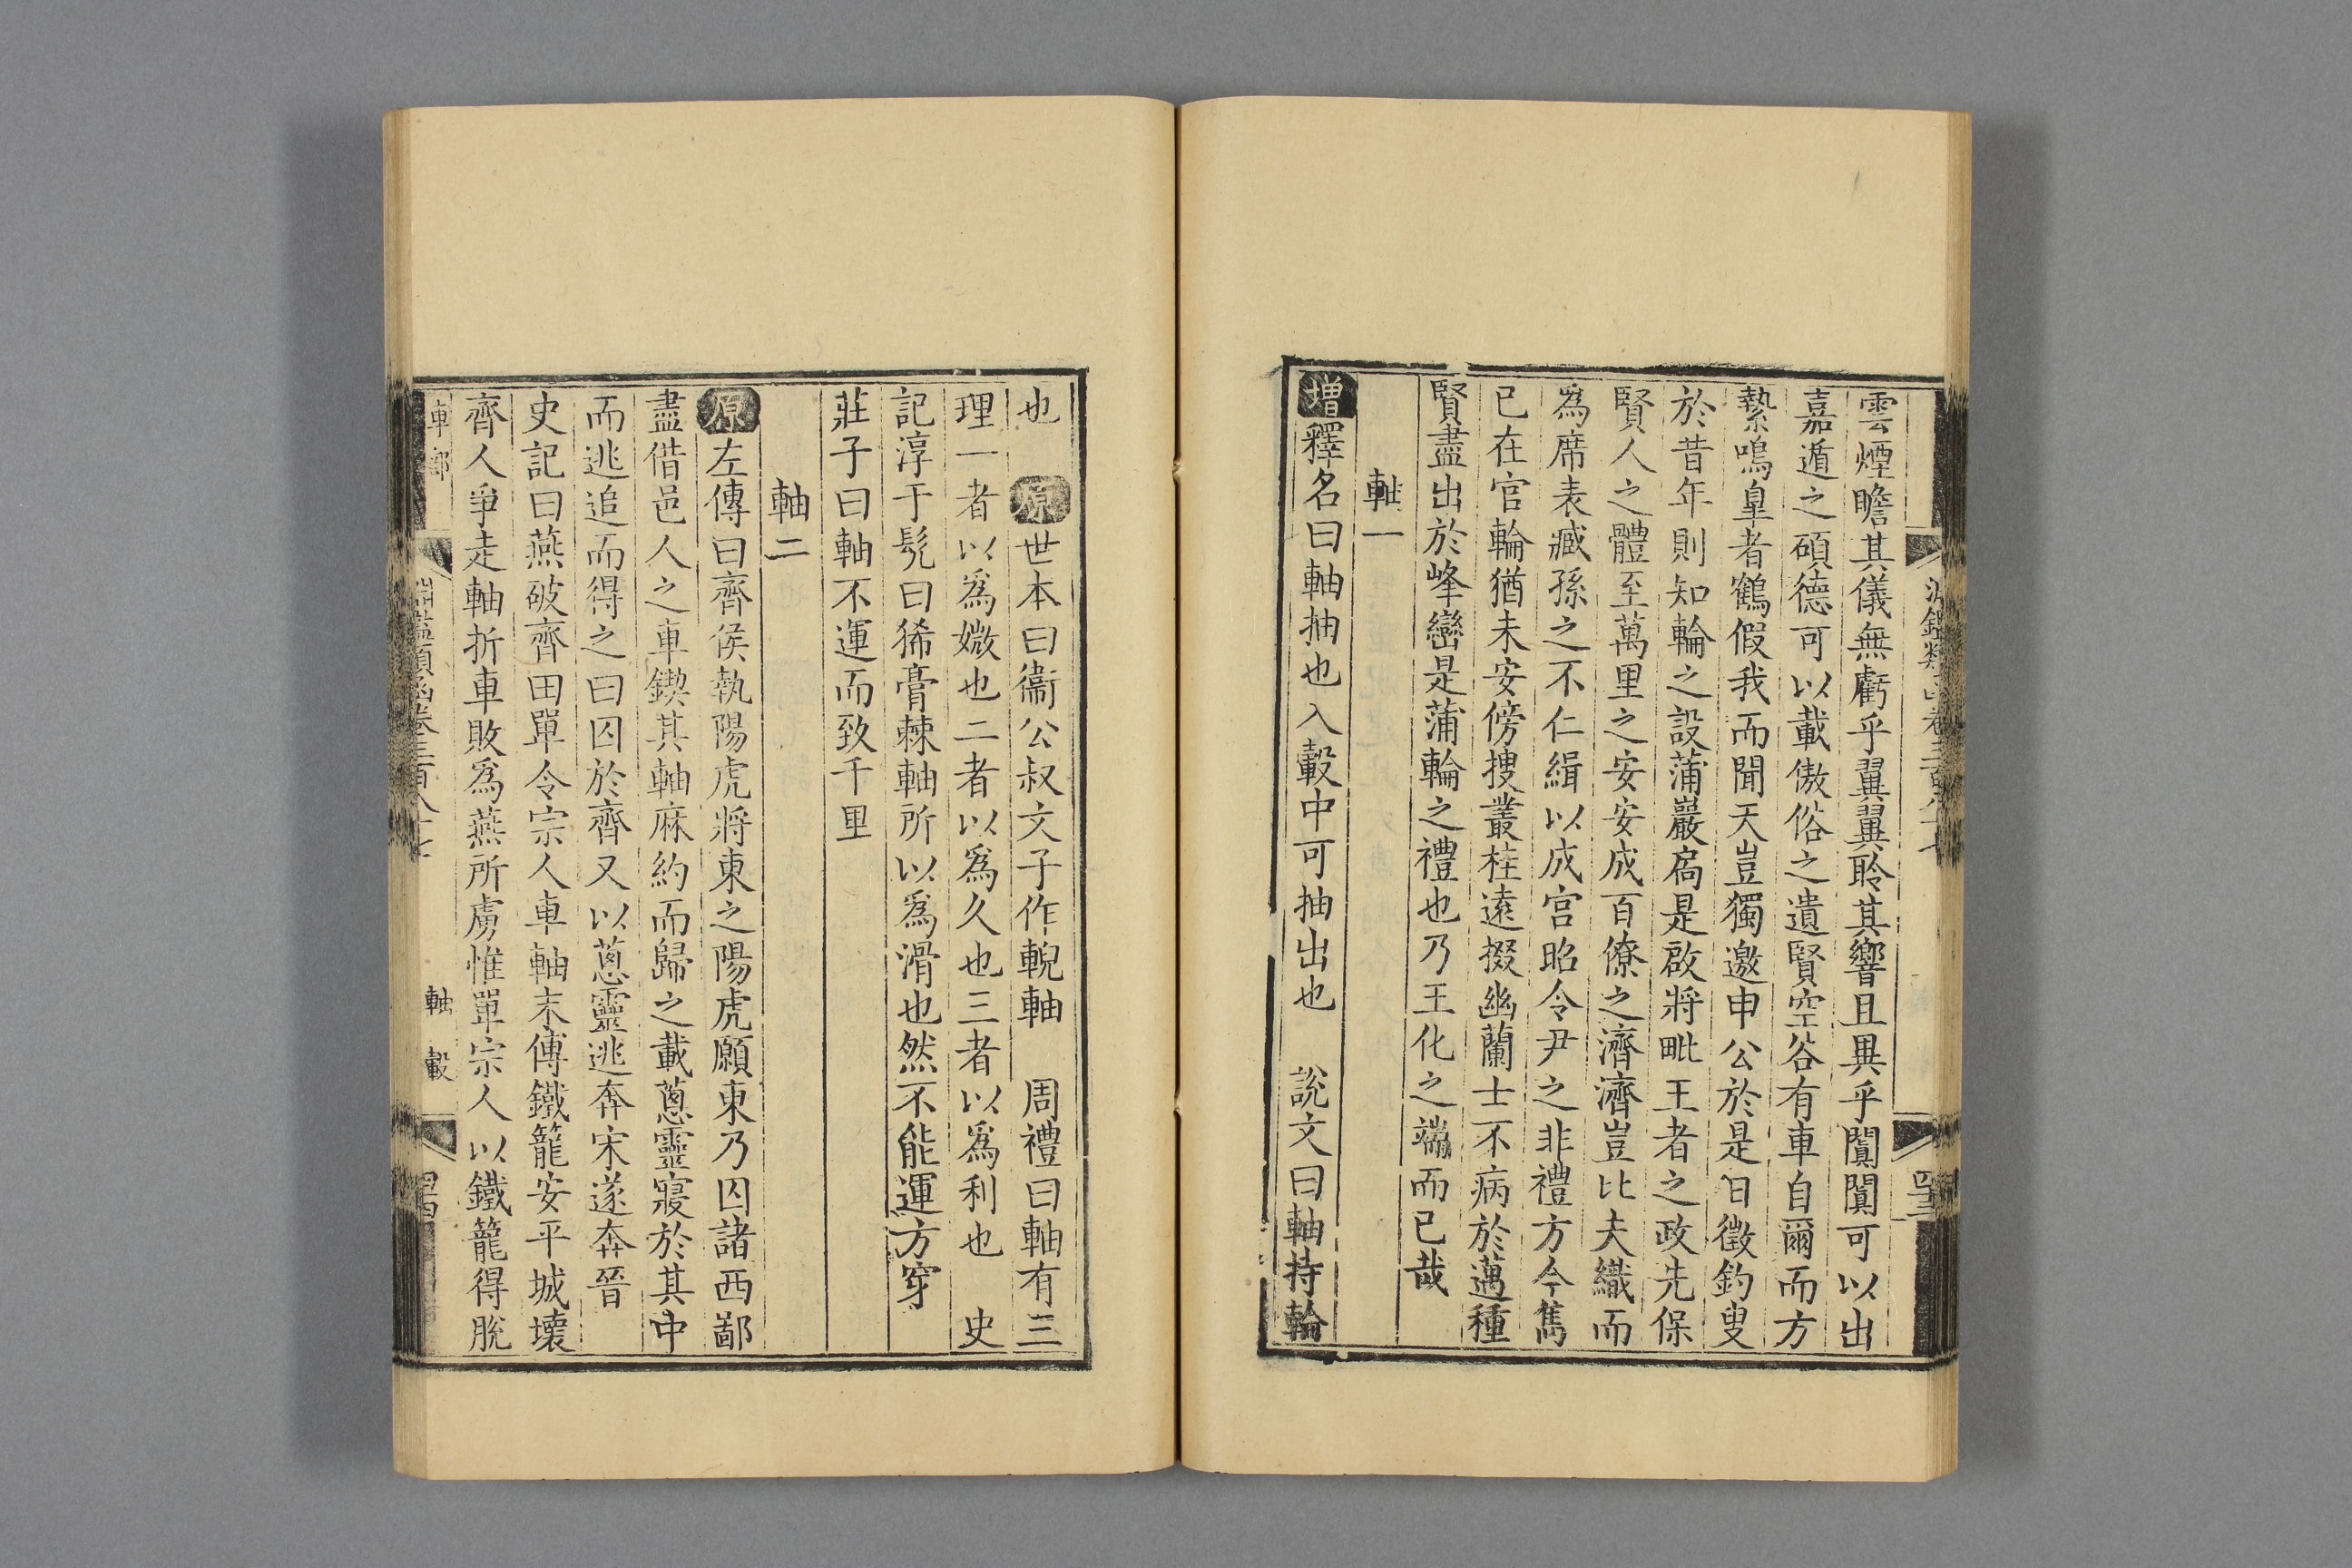 雲煙瞻其儀無虧乎翼翼聆其響且異乎闐闐可以出
嘉遁之碩德可以載傲俗之遺賢空谷有車自爾而方
縶鳴皐者鶴假我而聞天豈獨邀申公於是日徵釣叟
於昔年則知輪之設蒲巖扃是啟將毗王者之政先保
賢人之體至萬里之安安成百僚之濟濟豈比夫織而
為席表臧孫之不仁緝以成宮昭令尹之非禮方今雋
已在官輪猶未安傍搜叢桂遠掇幽蘭士不病於薖種
賢盡出於峰巒是蒲輪之禮也乃王化之端而已哉
軸一
增釋名曰軸抽也入轂中可抽出也 說文曰軸持輪
也 原世本曰衞公叔文子作輗軸 周禮曰軸有三
理一者以爲媺也二者以爲久也三者以爲利也 史
記淳于髡曰狶膏棘軸所以爲滑也然不能運方穿
莊子曰軸不運而致千里
軸二
原左傳曰齊侯執陽虎將東之陽虎願東乃囚諸西鄙
盡借邑人之車鍥其軸麻約而歸之載蔥靈寢於其中
而逃追而得之曰囚於齊又以蔥靈逃奔宋遂奔晉
史記曰燕破齊田單令宗人車軸末傅鐵籠安平城壞
齊人爭走軸折車敗爲燕所虜惟單宗人以鐵籠得脫
車部
淵鑑類函卷三百八十七
軸 轂